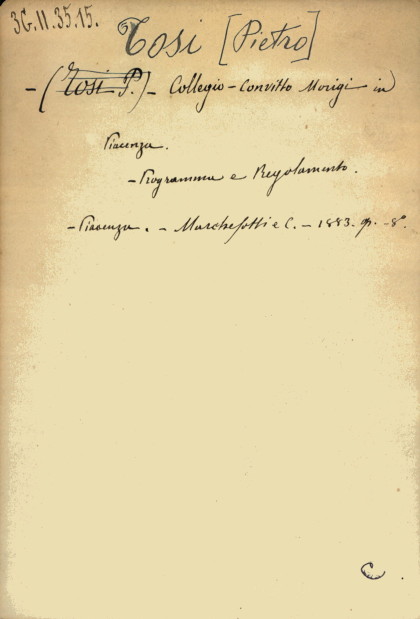 3G.II.35.15.
Tosi [Pietro]
- (Tosi P.) - Collegio - Convitto Morigi in
Piacenza.
- Programma e Regolamento.
- Piacenza. - Marchesotti e C. - 1883. - 8°
C.